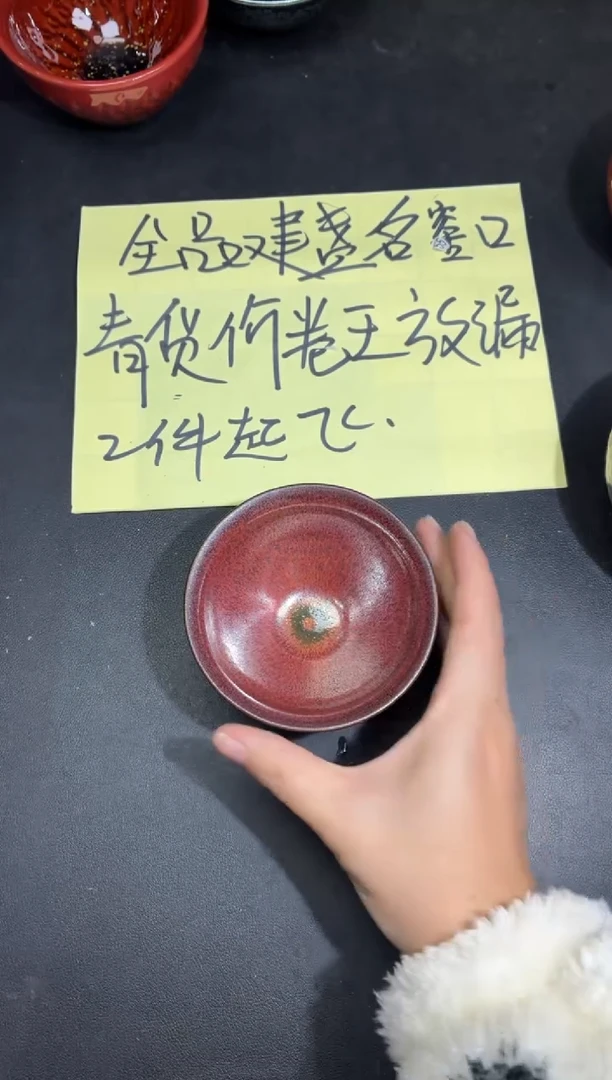 全是建盏名窑口
清货价卷王放漏
2件起飞.